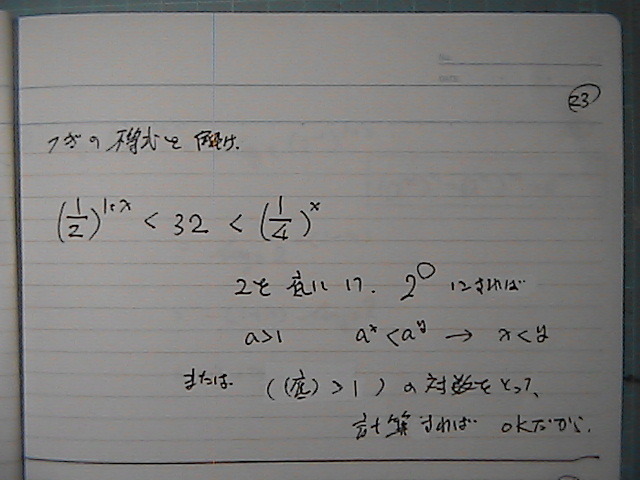 No.
DATE
23
つぎの不等式を解け.
(1/2)^{1+x} < 32 < (1/4)^x
2を底にして. 2^○ にすれば
a>1 a^x<a^y → x<y
または. ((底)>1) の対数をとって、
計算すれば OKだから.